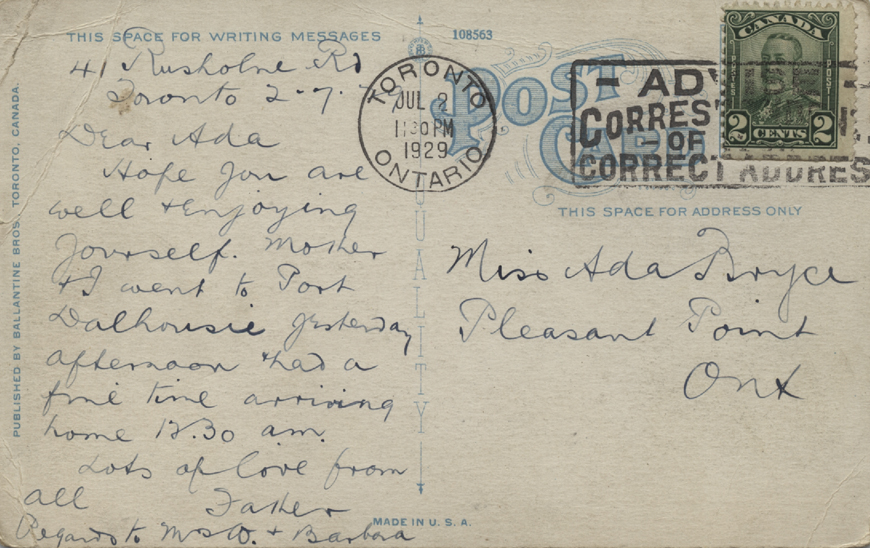 THIS SPACE FOR WRITING MESSAGES
108563
41 Rusholme Rd
Toronto 2-7-
Dear Ada
Hope you are
well & enjoying
yourself. Mother
& I went to Port
Dalhousie yesterday
afternoon & had a
fine time arriving
home 12.30 a.m.
Lots of love from
all Father
Regards to Mrs W. & Barbara
PUBLISHED BY BALLANTINE BROS. TORONTO, CANADA.
QUALITY
MADE IN U.S.A.
POST
CARD
TORONTO
JUL 2
11 30 PM
1929
ONTARIO
CORRECT ADDRES
CANADA
POSTES POST
2 CENTS 2
THIS SPACE FOR ADDRESS ONLY
Miss Ada Bryce
Pleasant Point
Ont